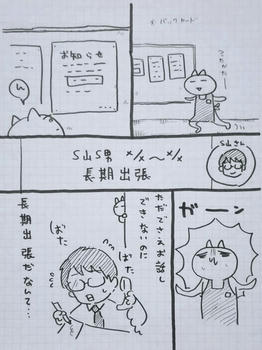 ※バックヤード
てくてく
お知らせ
ん
S山S男 ×/×～×/×
長期出張
S山さん
ガーン
ただでさえお話し
できないのに
ばた
ばた
長期出張だなんて…